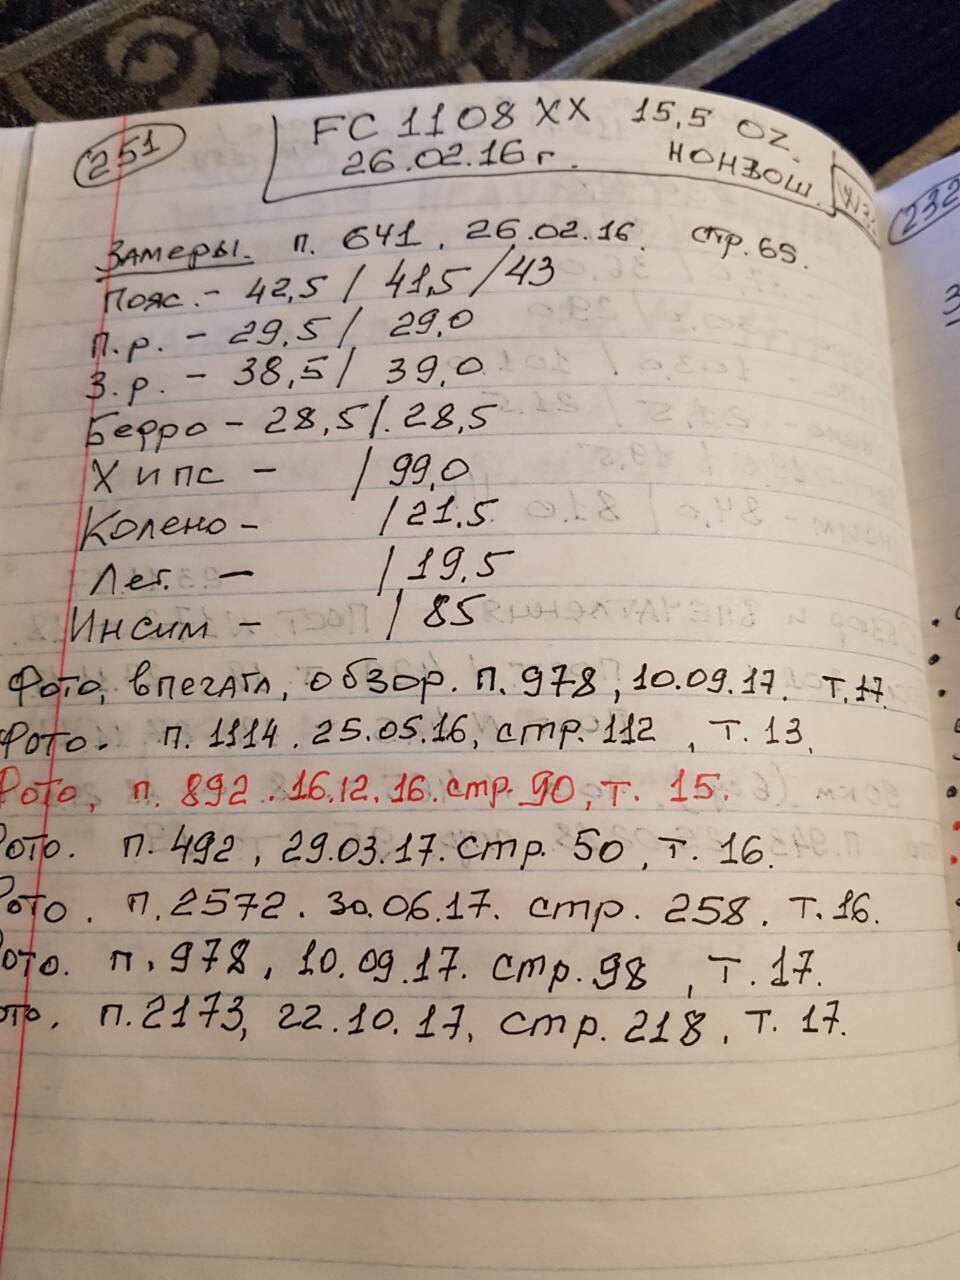 251
FC 1108 XX 15,5 OZ.
26.02.16 г. НОНВОШ.
W32
232
Замеры. п. 641. 26.02.16. стр. 65.
Пояс. - 42,5 / 41,5 / 43
П.р. - 29,5 / 29,0
З.р. - 38,5 / 39,0
Бедро - 28,5 /. 28,5
Хипс - / 99,0
Колено - / 21,5
Лег. - / 19,5
Инсим - / 85
Фото, впечатл, обзор. п. 978, 10.09.17. т. 17.
Фото. п. 1114. 25.05.16, стр. 112, т. 13.
Фото, п. 892. 16.12.16. стр. 90, т. 15.
Фото. п. 492, 29.03.17. стр. 50, т. 16.
Фото. п. 2572. 30.06.17. стр. 258. т. 16.
Фото. п. 978, 10.09.17. стр. 98, т. 17.
Фото. п. 2173, 22.10.17, стр. 218, т. 17.